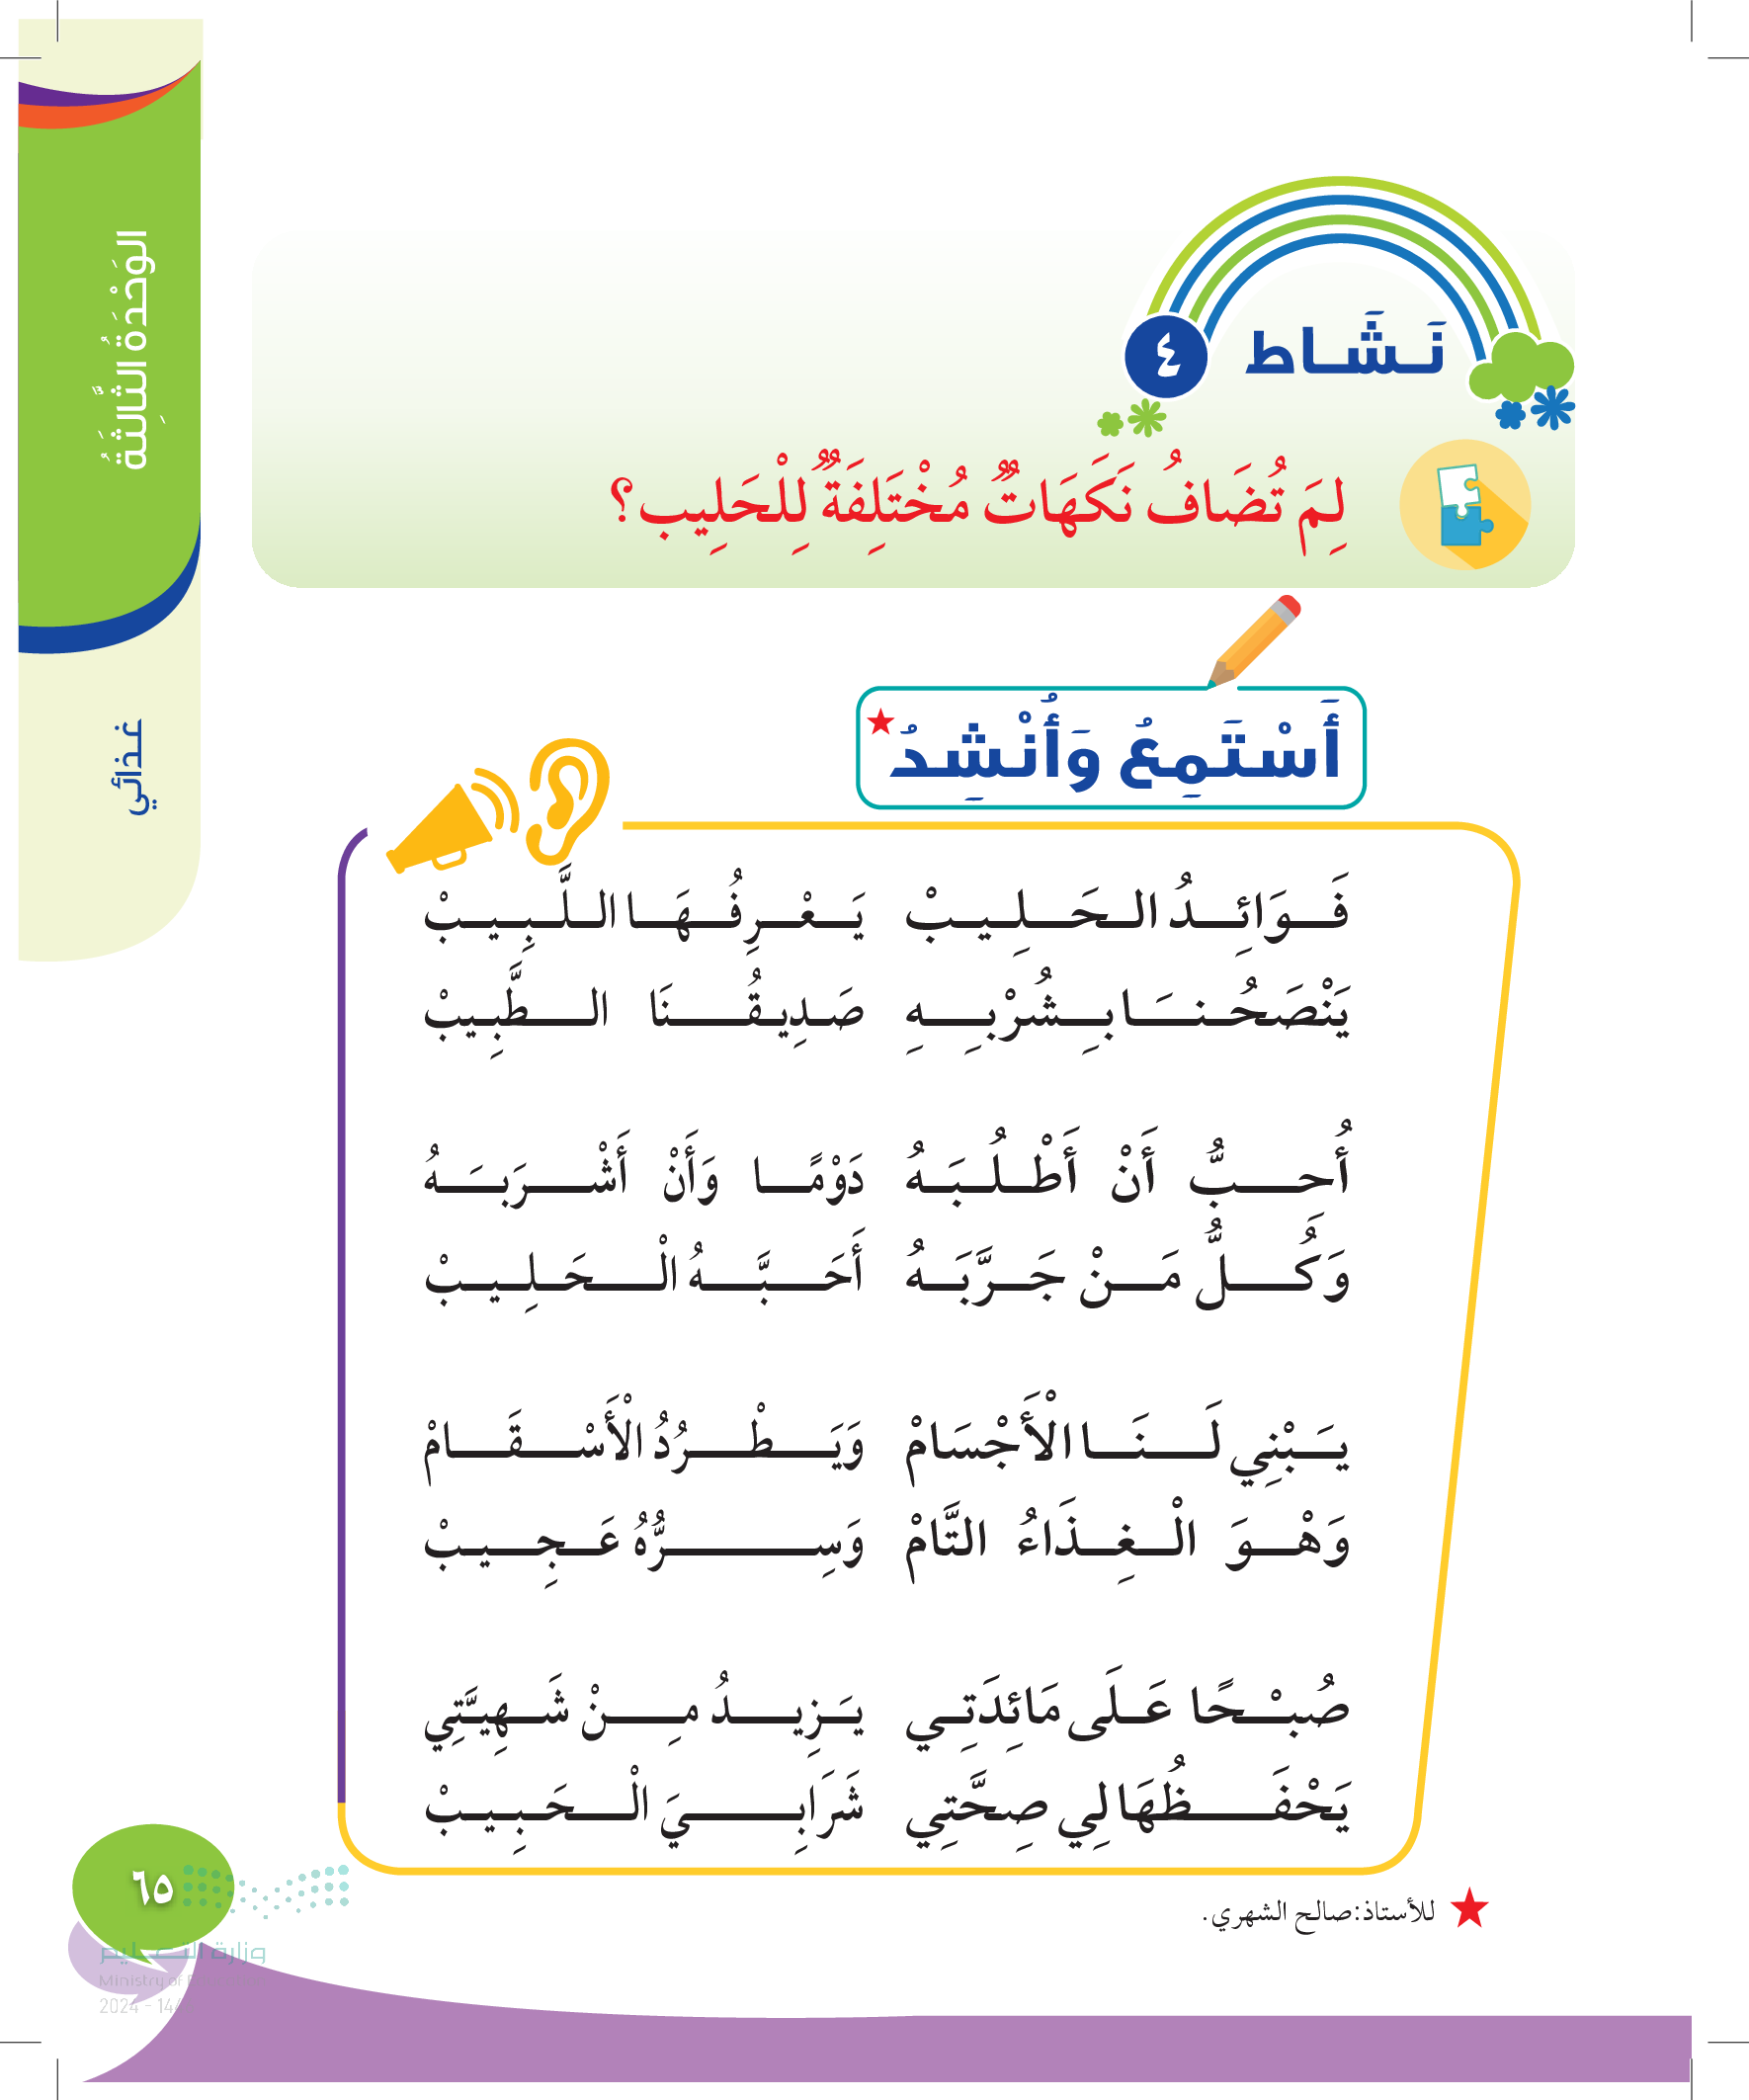 الوَحْدَةُ الثَّالِثَةُ
غذائي
نَشَاط ٤
لِمَ تُضَافُ نَكَهَاتٌ مُخْتَلِفَةٌ لِلْحَلِيبِ؟
أَسْتَمِعُ وَأُنْشِدُ
فَوَائِدُ الحَلِيبْ يَعْرِفُهَا اللَّبِيبْ
يَنْصَحُنَا بِشُرْبِهِ صَدِيقُنَا الطَّبِيبْ
أُحِبُّ أَنْ أَطْلُبَهُ دَوْمًا وَأَنْ أَشْرَبَهُ
وَكُلُّ مَنْ جَرَّبَهُ أَحَبَّهُ الْحَلِيبْ
يَبْنِي لَنَا الْأَجْسَامْ وَيَطْرُدُ الْأَسْقَامْ
وَهْوَ الْغِذَاءُ التَّامْ وَسِرُّهُ عَجِيبْ
صُبْحًا عَلَى مَائِدَتِي يَزِيدُ مِنْ شَهِيَّتِي
يَحْفَظُهَا لِي صِحَّتِي شَرَابِيَ الْحَبِيبْ
للأستاذ: صالح الشهري.
٦٥
وزارة التعليم
Ministry of
2024 - 14